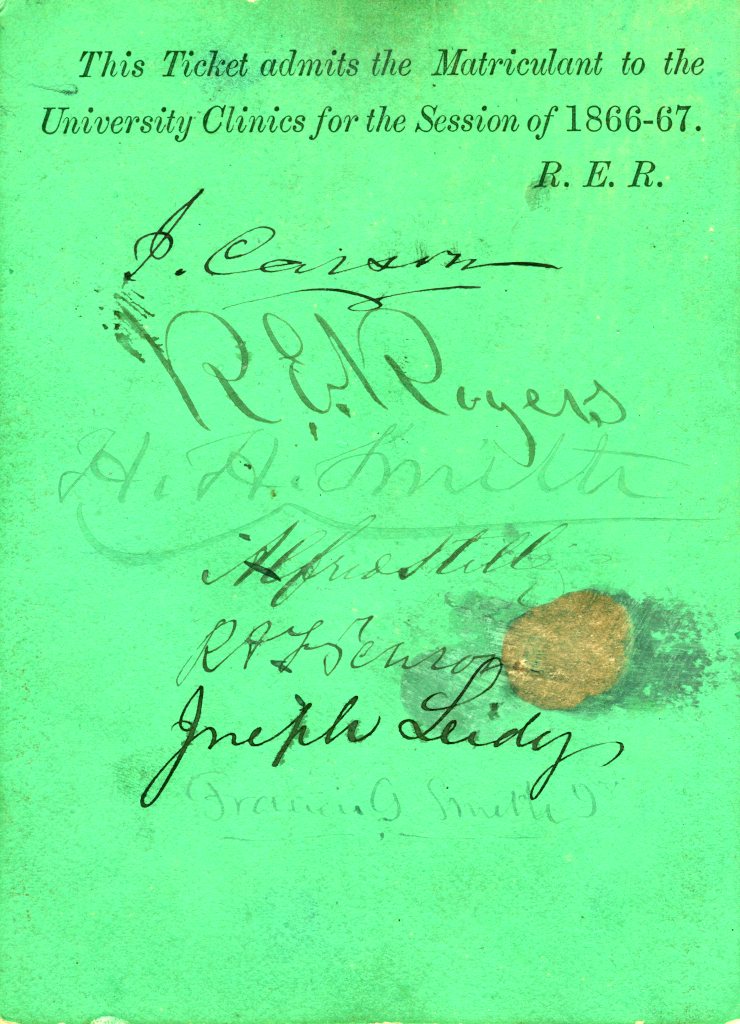 This Ticket admits the Matriculant to the
University Clinics for the Session of 1866-67.
R. E. R.
J. Carson
R. E. Rogers
H. H. Smith
Alfred Stillé
R A F Penrose
Joseph Leidy
Francis G Smith Jr